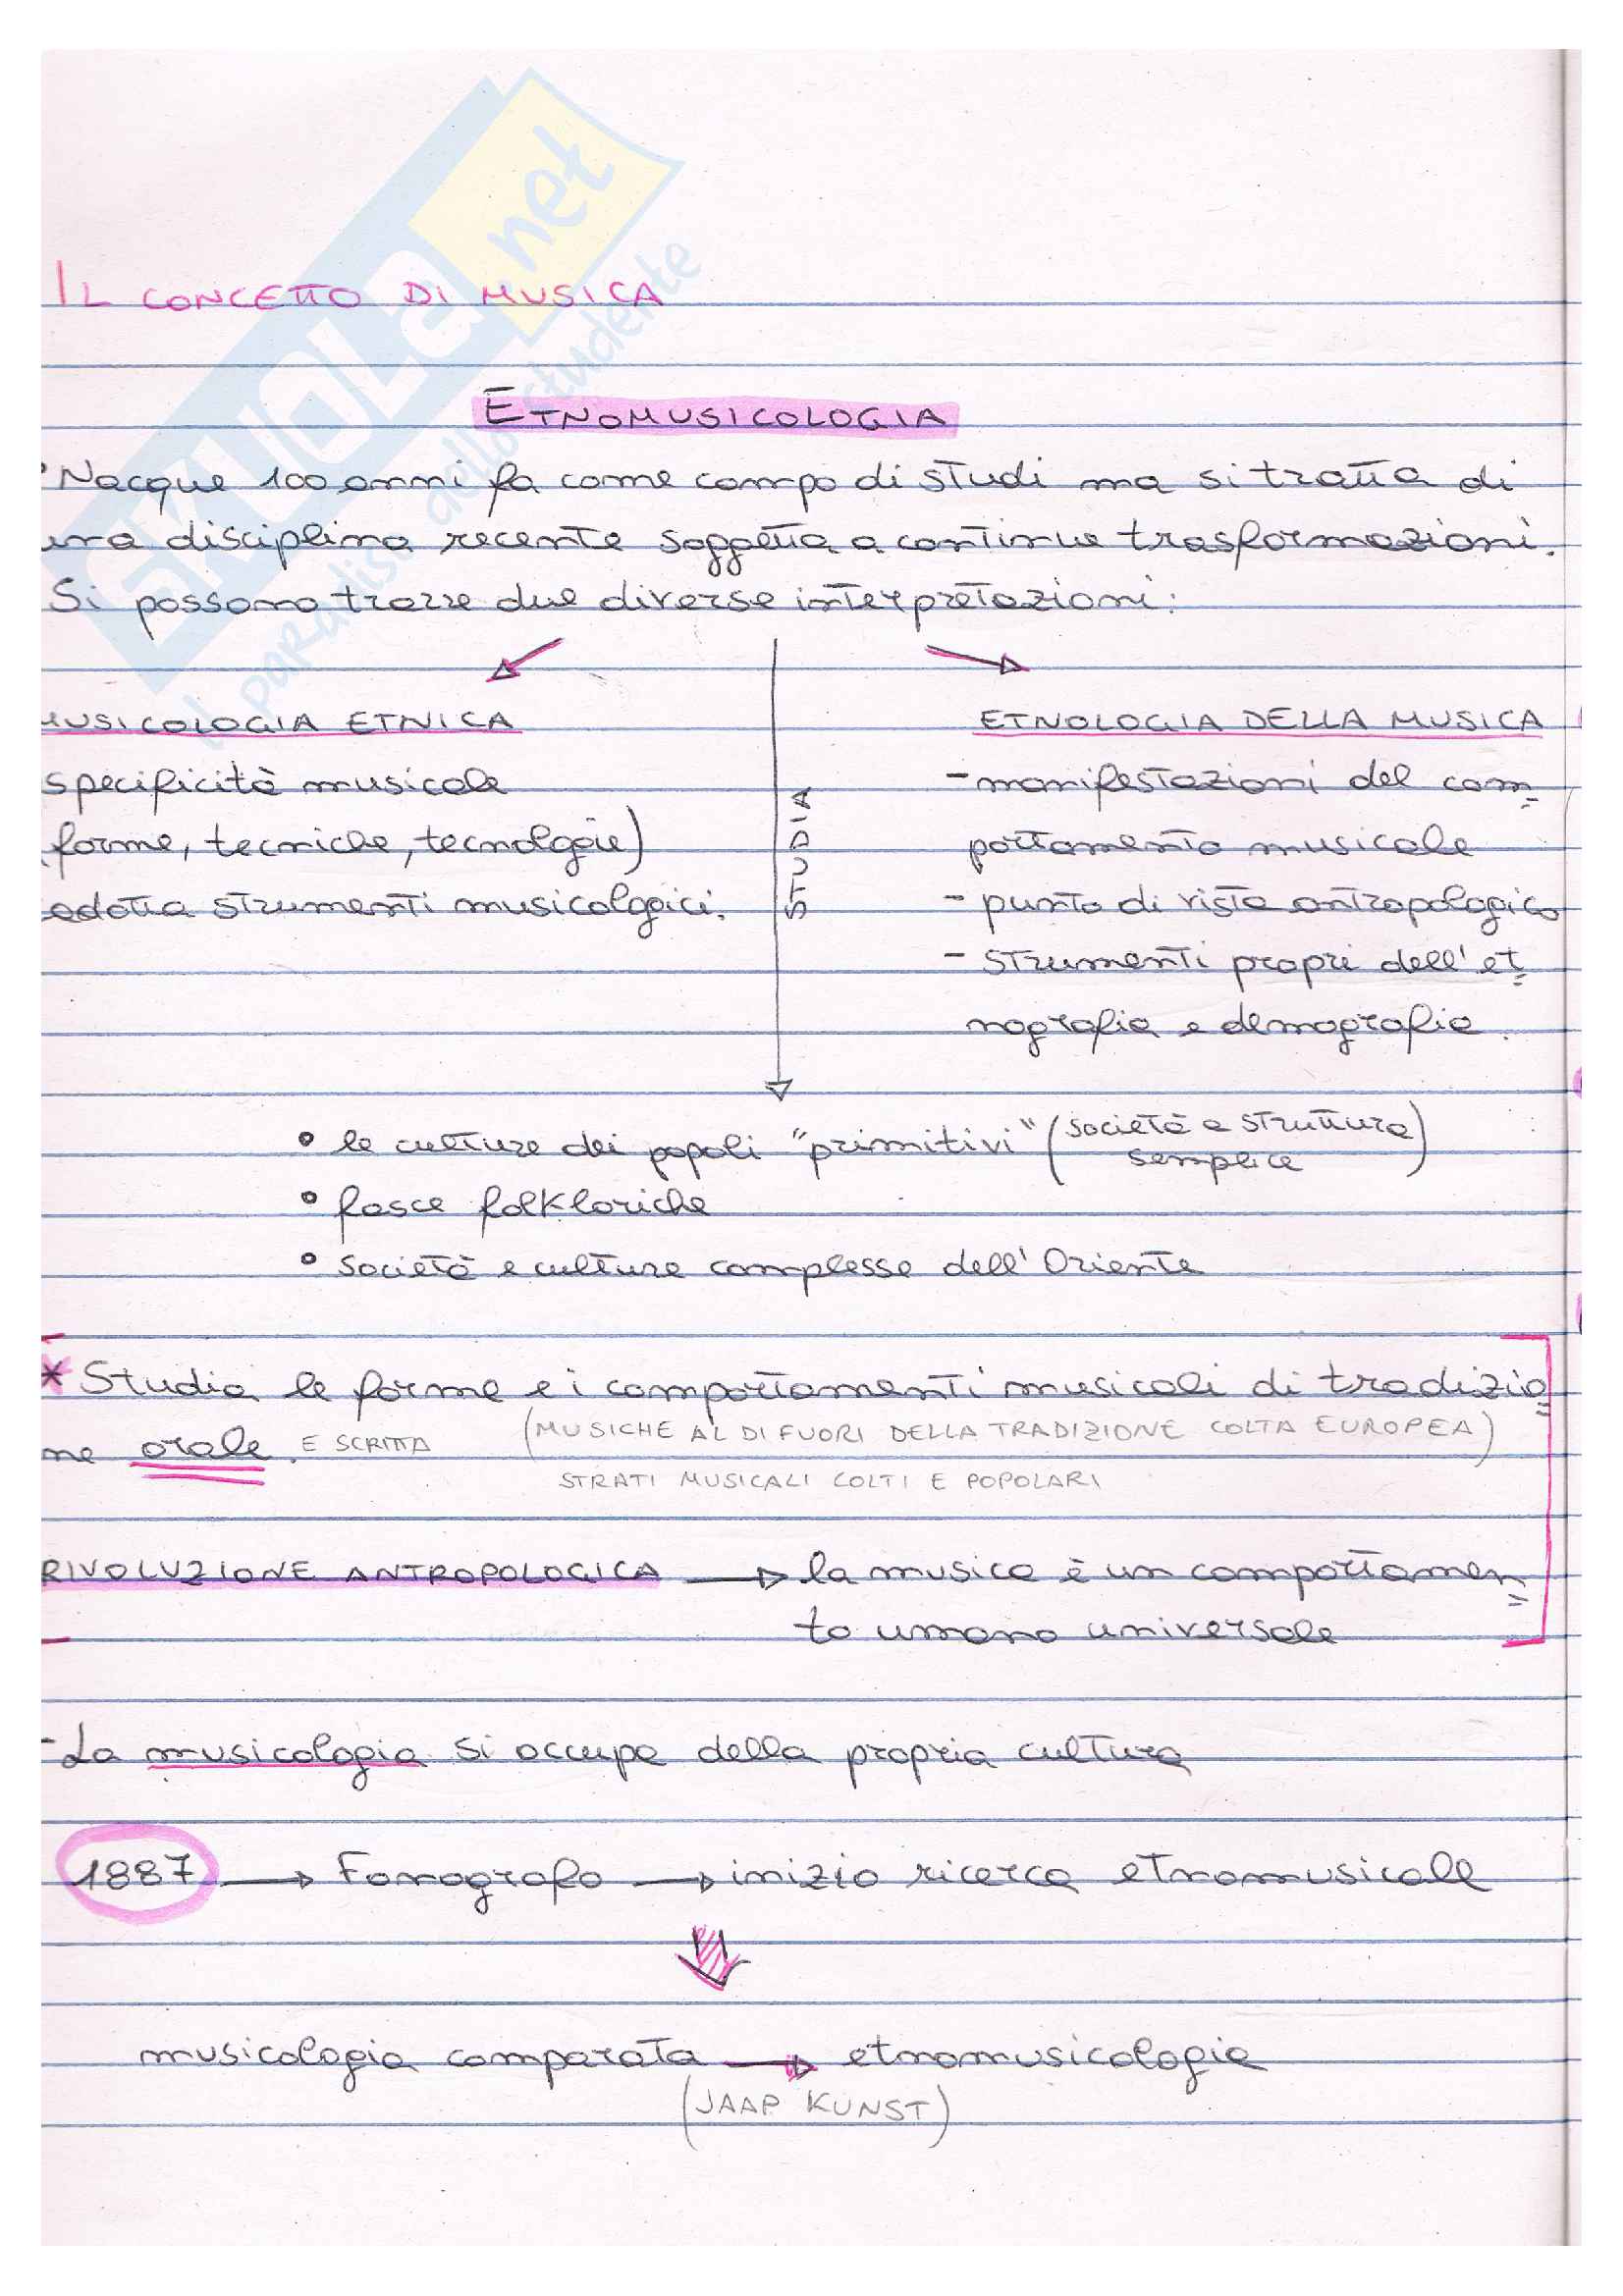 SKUOLA.net
Il paradiso dello studente
IL CONCETTO DI MUSICA
ETNOMUSICOLOGIA
Nacque 100 anni fa come campo di studi ma si tratta di
una disciplina recente soggetta a continue trasformazioni.
Si possono trarre due diverse interpretazioni:
MUSICOLOGIA ETNICA
specificità musicale
(forme, tecniche, tecnologie)
adotta strumenti musicologici.
STUDIA
ETNOLOGIA DELLA MUSICA
- manifestazioni del com=
portamento musicale
- punto di vista antropologico
- strumenti propri dell'et=
nografia e demografia.
• le culture dei popoli "primitivi" (società a struttura
semplice)
• fasce folkloriche
• società e culture complesse dell'Oriente
* Studia le forme e i comportamenti musicali di tradizio=
ne orale. E SCRITTA (MUSICHE AL DI FUORI DELLA TRADIZIONE COLTA EUROPEA)
STRATI MUSICALI COLTI E POPOLARI
RIVOLUZIONE ANTROPOLOGICA → la musica è un comportamen=
to umano universale
- La musicologia si occupa della propria cultura
1887 → Fonografo → inizio ricerca etnomusicale
musicologia comparata → etnomusicologia
(JAAP KUNST)